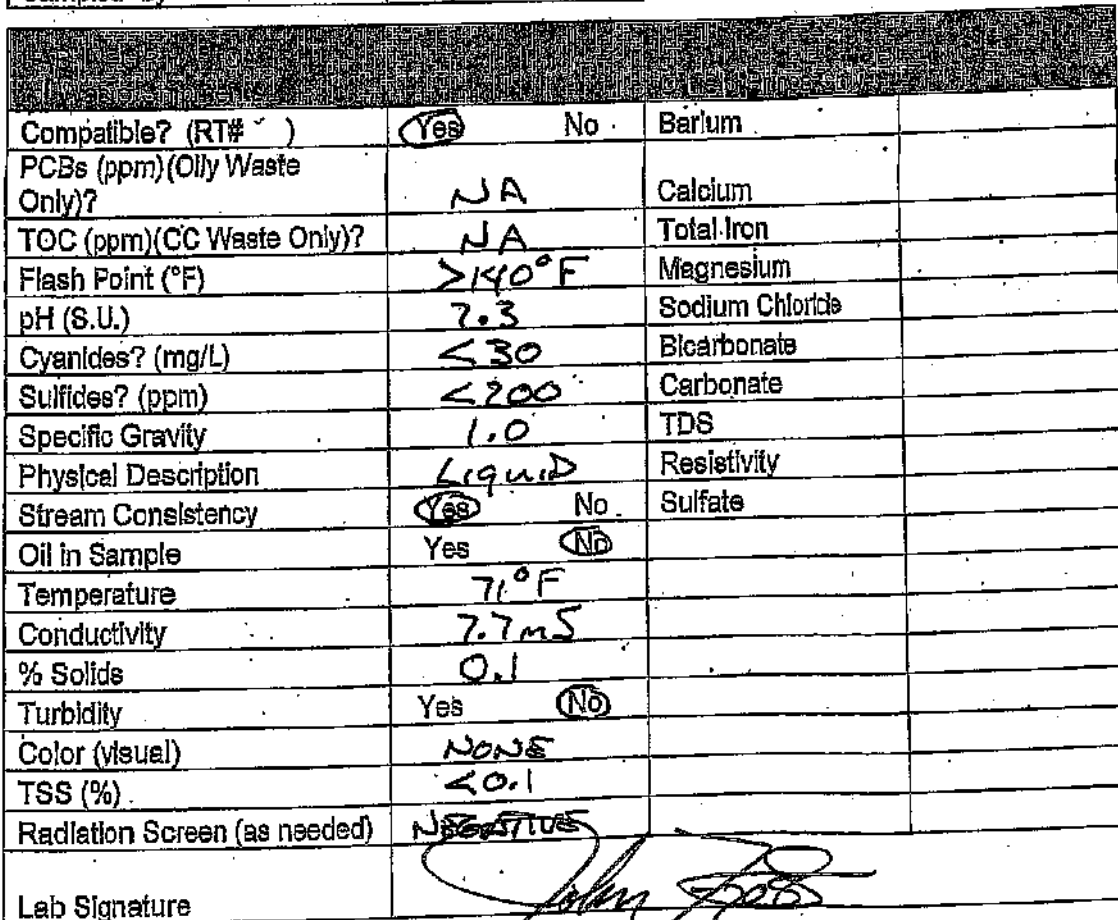 Sampled by
Compatible? (RT# ) Yes No Barium
PCBs (ppm)(Oily Waste
Only)? NA Calcium
TOC (ppm)(CC Waste Only)? NA Total Iron
Flash Point (°F) >140°F Magnesium
pH (S.U.) 7.3 Sodium Chloride
Cyanides? (mg/L) <30 Bicarbonate
Sulfides? (ppm) <200 Carbonate
Specific Gravity 1.0 TDS
Physical Description Liquid Resistivity
Stream Consistency Yes No Sulfate
Oil in Sample Yes No
Temperature 71°F
Conductivity 7.7 mS
% Solids 0.1
Turbidity Yes No
Color (visual) NONE
TSS (%) <0.1
Radiation Screen (as needed) NEGATIVE
Lab Signature John